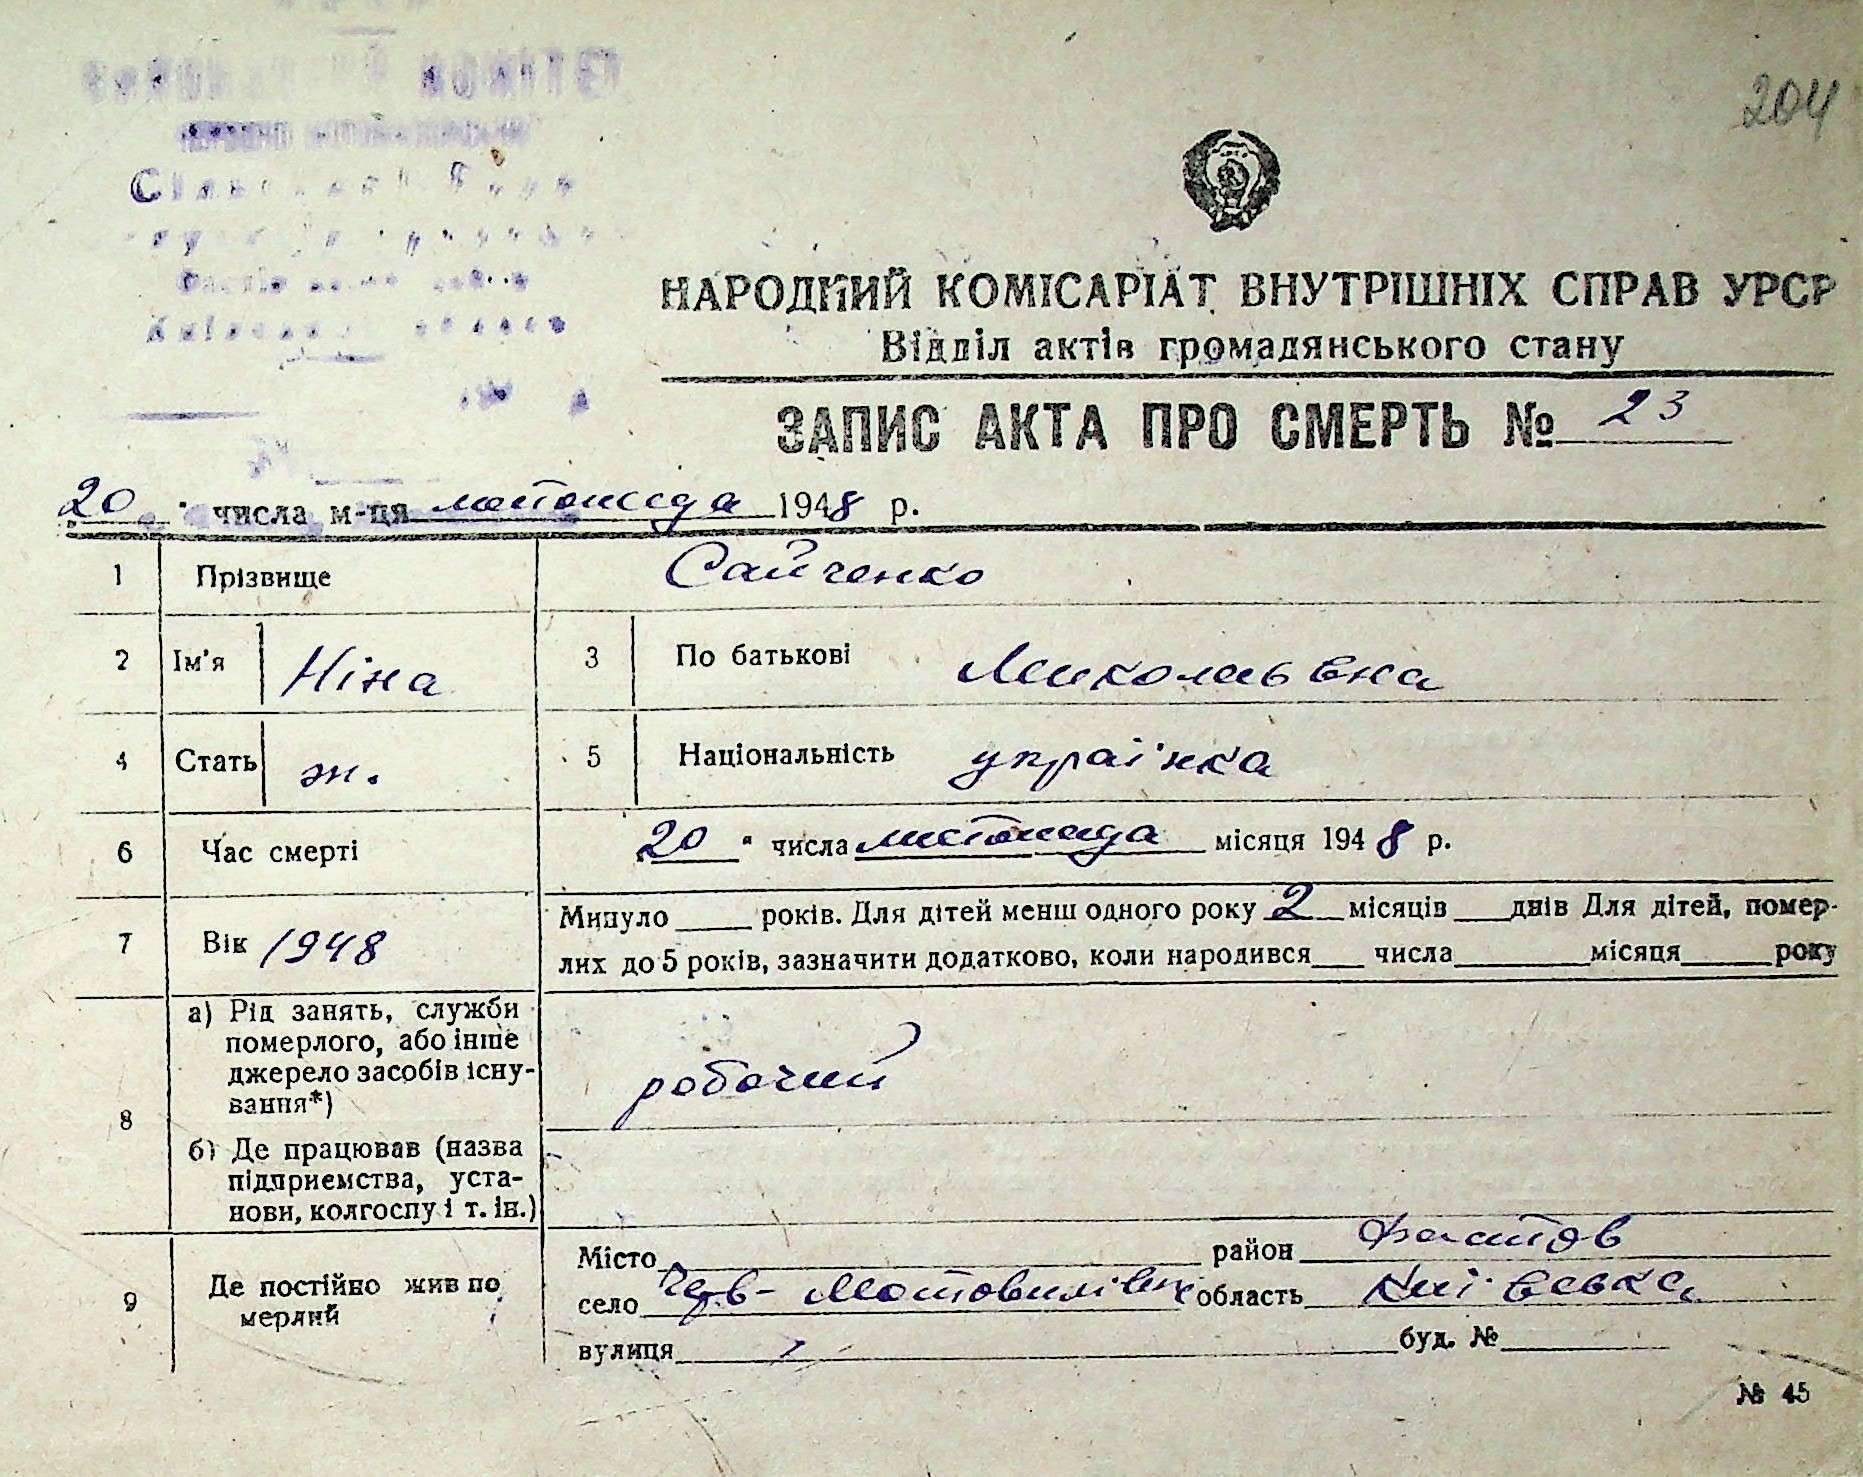 204
НАРОДНИЙ КОМІСАРІАТ ВНУТРІШНІХ СПРАВ УРСР
Відділ актів громадянського стану
ЗАПИС АКТА ПРО СМЕРТЬ № 23
"20" числа м-ця листопада 1948 р.
1 Прізвище Сайченко
2 Ім'я Ніна 3 По батькові Миколаївна
4 Стать ж. 5 Національність українка
6 Час смерті "20" числа листопада місяця 1948 р.
7 Вік 1948 Минуло ____ років. Для дітей менш одного року 2 місяців ____ днів Для дітей, помер-
лих до 5 років, зазначити додатково, коли народився ____ числа ____ місяця ____ року
8 а) Рід занять, служби
померлого, або інше
джерело засобів існу-
вання*) робочий
б) Де працював (назва
підприємства, уста-
нови, колгоспу і т. ін.)
9 Де постійно жив по
мерлий
Місто ____ район Фастов
село Черв- Мотовилівка область Київська
вулиця ____ буд. № ____
№ 45